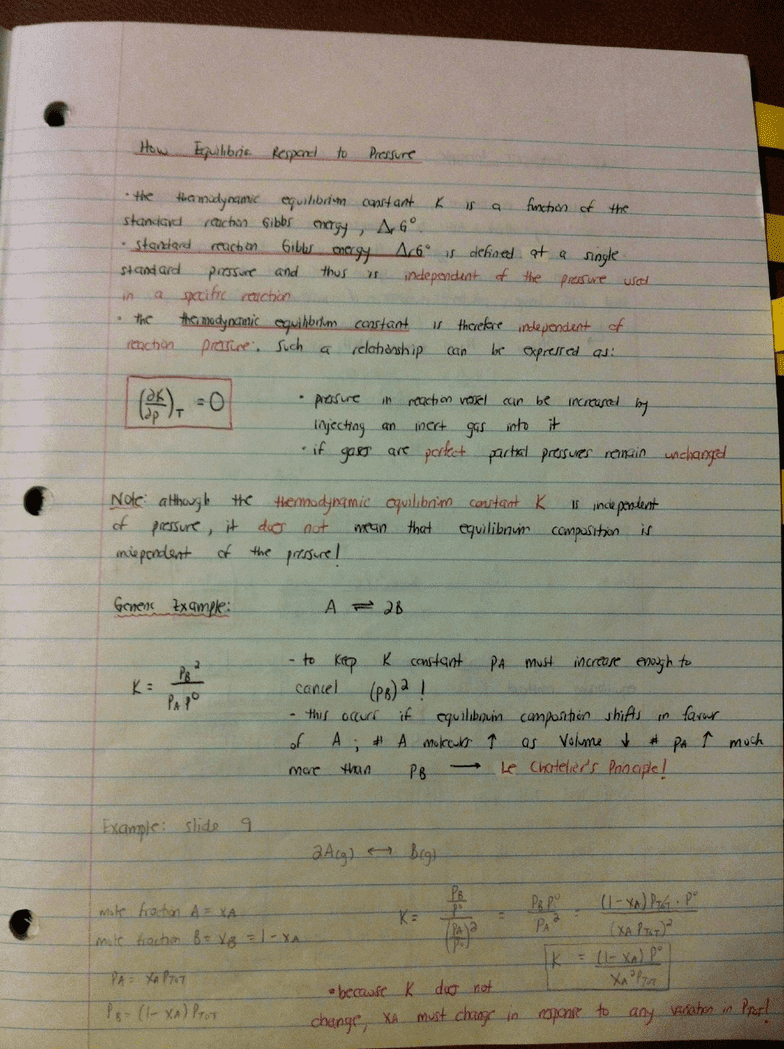 How Equilibria Respond to Pressure
• the thermodynamic equilibrium constant K is a function of the
standard reaction Gibbs energy, ΔrG°.
• standard reaction Gibbs energy ΔrG° is defined at a single
standard pressure and thus is independent of the pressure used
in a specific reaction
• the thermodynamic equilibrium constant is therefore independent of
reaction pressure. Such a relationship can be expressed as:
(∂K/∂p)T = 0
• pressure in reaction vessel can be increased by
injecting an inert gas into it
• if gases are perfect partial pressures remain unchanged
Note: although the thermodynamic equilibrium constant K is independent
of pressure, it does not mean that equilibrium composition is
independent of the pressure!
Generic Example: A ⇌ 2B
K = PB²/PA p°
- to keep K constant PA must increase enough to
cancel (PB)² !
- this occurs if equilibrium composition shifts in favour
of A; # A molecules ↑ as Volume ↓ # PA ↑ much
more than PB → Le Chatelier's Principle!
Example: slide 9
2A(g) ↔ B(g)
mole fraction A = XA
mole fraction B = XB = 1 - XA
PA = XA PTOT
PB = (1 - XA) PTOT
K = (PB/p°)/(PA/p°)² = PB p°/PA² = (1-XA) PTOT · p°/(XA PTOT)²
K = (1-XA) p°/XA² PTOT
• because K does not
change, XA must change in response to any variation in PTOT!